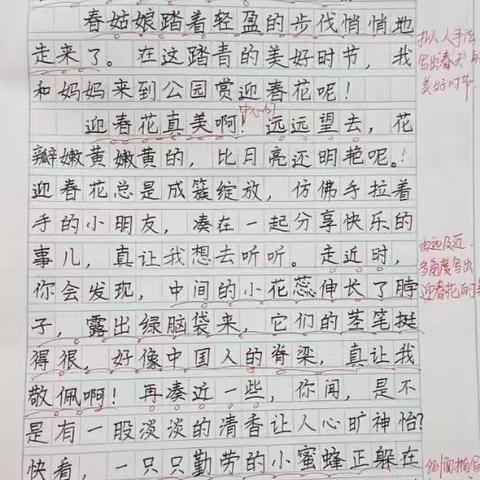 春姑娘踏着轻盈的步伐悄悄地
走来了。在这踏青的美好时节，我
和妈妈来到公园赏迎春花呢！
中心句
迎春花真美啊！远远望去，花
瓣嫩黄嫩黄的，比月亮还明艳呢。！
迎春花总是成簇绽放，仿佛手拉着
手的小朋友，凑在一起分享快乐的
事儿，真让我想去听听。走近时，
你会发现，中间的小花蕊伸长了脖
子，露出绿脑袋来，它们的茎笔挺
得很。好像中国人的脊梁，真让我
敬佩啊！再凑近一些，你闻，是不
是有一股淡淡的清香让人心旷神怡？
快看，一只只勤劳的小蜜蜂正躲在
拟人手法
写出春天的
美好时节
由远及近，
多角度写出
迎春花的美
侧面描写